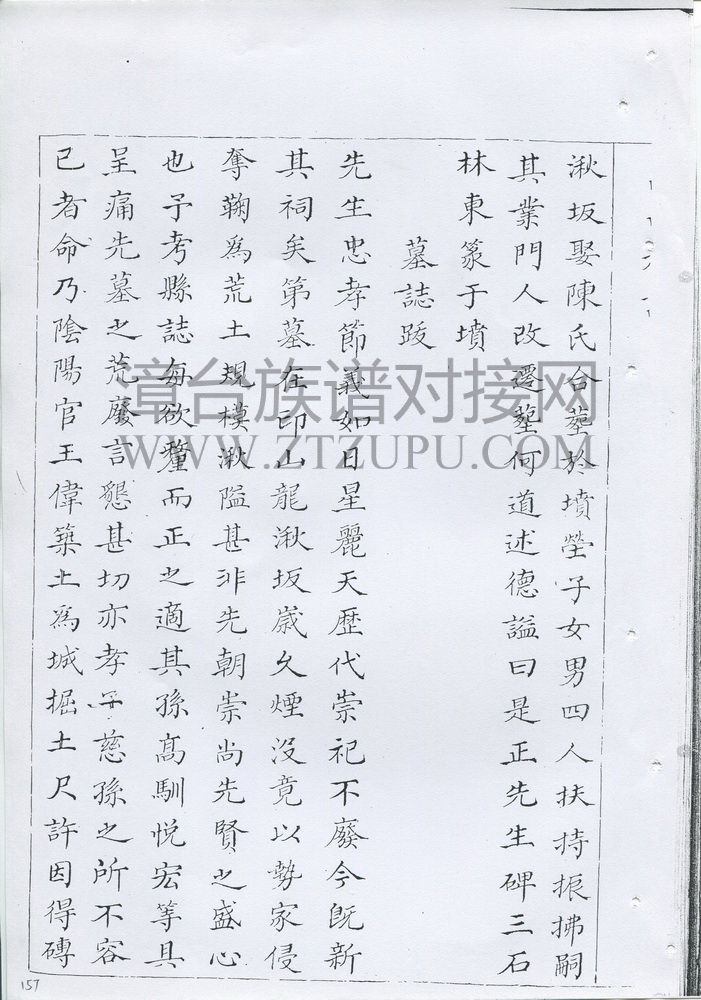 湫坂娶陳氏合葬於墳塋子女男四人扶持振拂嗣
其業門人改遷葬何道述德謚曰是正先生碑三石
林東篆于墳
墓誌跋
先生忠孝節義如日星麗天歷代崇祀不廢今旣新
其祠矣第墓在印山龍湫坂歲久煙沒竟以勢家侵
奪鞠爲荒土規模湫隘甚非先朝崇尚先賢之盛心
也予考縣誌每欲釐而正之適其孫髙馴悅宏等具
呈痛先墓之荒廢言懇甚切亦孝子慈孫之所不容
已者命乃陰陽官王偉築土爲城掘土尺許因得磚
漳台族谱对接网
WWW.ZTZUPU.COM
157